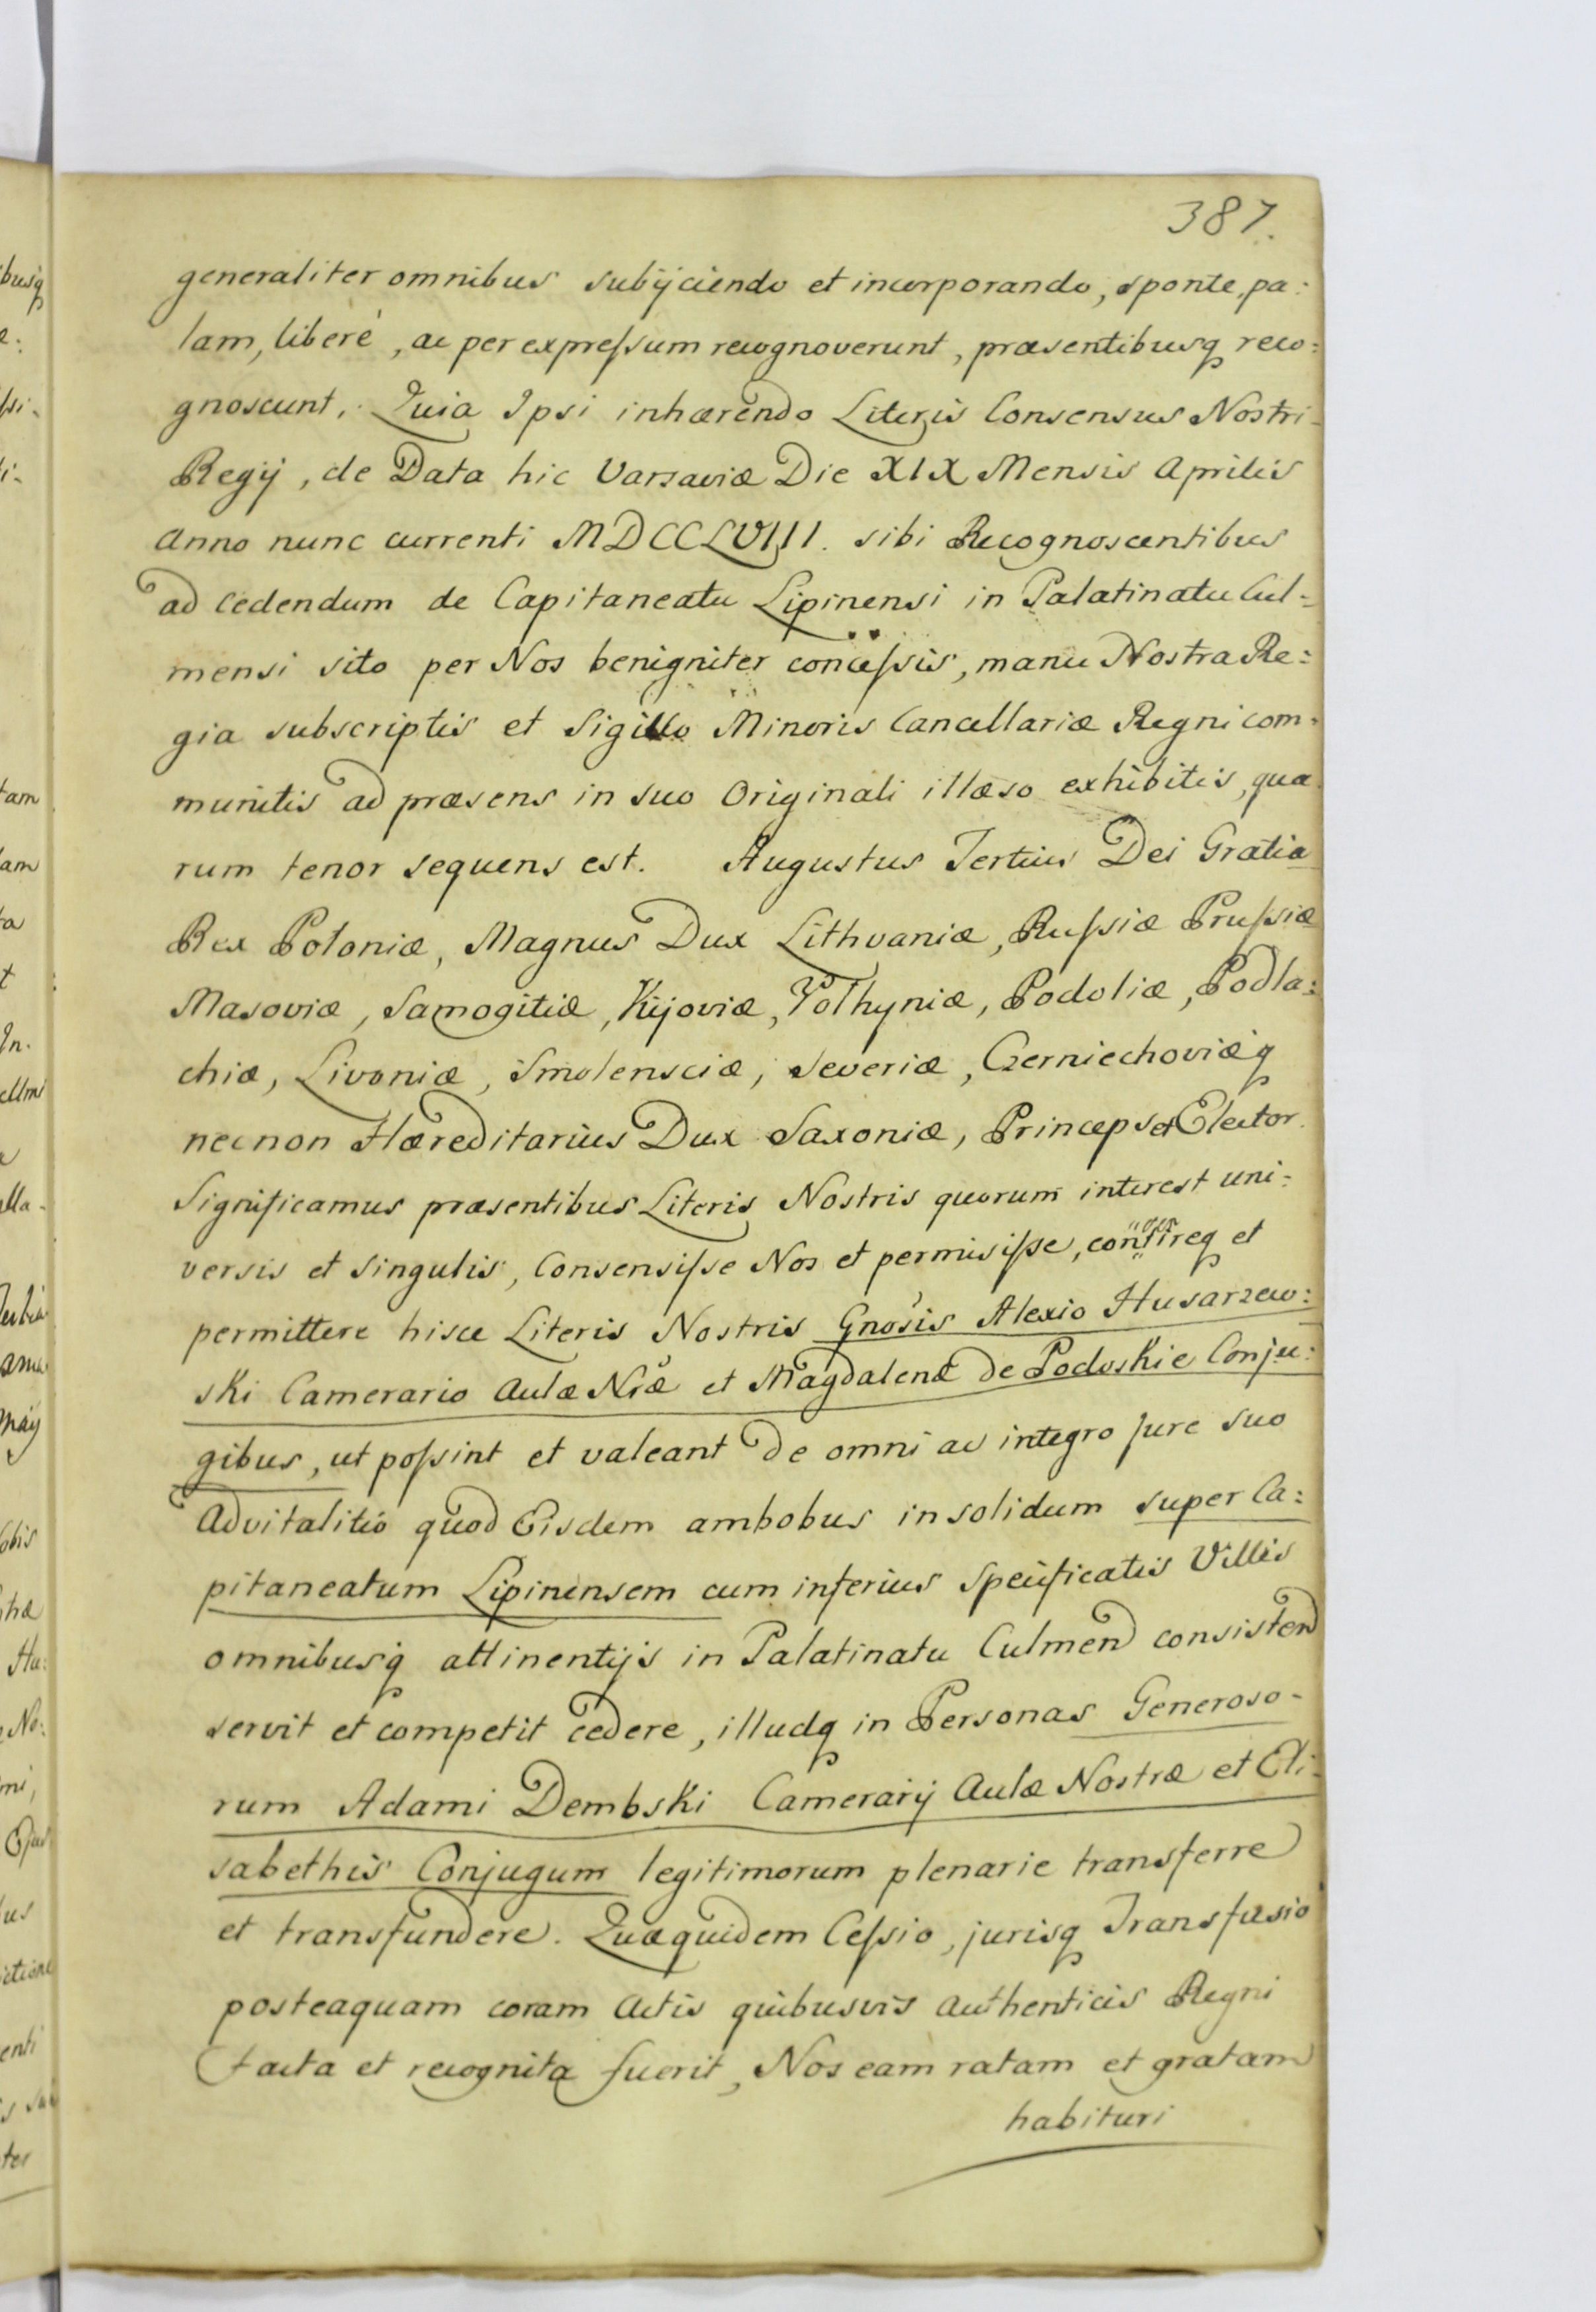 387.
generaliter omnibus subijciendo et incorporando, sponte, pa:
lam, liberè, ac per expreſsum recognoverunt, præsentibusq reco:
gnoscunt, Quia Ipsi inhærendo Literis Consensus Nostri
Regij, de Data hic Varsaviæ Die XIX Mensis Aprilis
Anno nunc currenti MDCCLVIII. sibi Recognoscentibus
ad cedendum de Capitaneatu Lipinensi in Palatinatu Cul=
mensi sito per Nos benigniter conceſsis, manu Nostra Re:
gia subscriptis et Sigillo Minoris Cancellariæ Regni com:
munitis ad præsens in suo Originali illæso exhibitis, qua
rum tenor sequens est. Augustus Tertius Dei Gratia
Rex Poloniæ, Magnus Dux Lithvaniæ, Ruſsiæ Pruſsiæ
Masoviæ, Samogitiæ, Kijoviæ, Volhyniæ, Podoliæ, Podla:
chiæ, Livoniæ, Smolensciæ, Severiæ, Czerniechoviæq
necnon Hæreditarius Dux Saxoniæ, Princeps et Elector.
Significamus præsentibus Literis Nostris quorum interest uni:
versis et singulis, Consensiſse Nos et permisiſse, et
permittere hisce Literis Nostris Gnosis Alexio Husarzew:
ski Camerario Aulæ Nræ et Magdalenæ de Podoskie Conju:
gibus, ut poſsint et valeant de omni ac integro Jure suo
Advitalitio quod Eisdem ambobus insolidum super Ca:
pitaneatum Lipinensem cum inferius specificatis Villis
omnibusq attinentijs in Palatinatu Culmen consisten
servit et competit cedere, illudq in Personas Generoso-
rum Adami Dembski Camerarij Aulæ Nostræ et Eli:
sabethis Conjugum legitimorum plenarie transferre
et transfundere. Quæquidem Ceſsio, jurisq Transfusio
posteaquam coram Actis quibusvis Authenticis Regni
facta et recognita fuerit, Nos eam ratam et gratam
habituri